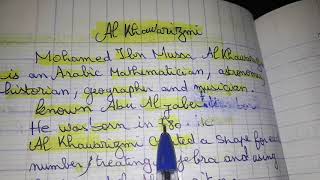 Al Khawarizmi
Mohamed Ibn Mussa Al Khawar
is an Arabic Mathematician, astronom
historian, geographer and musician.
known Abu Al
He was born in 780
Al Khawarizmi created a shape for
number, treating algebra and using